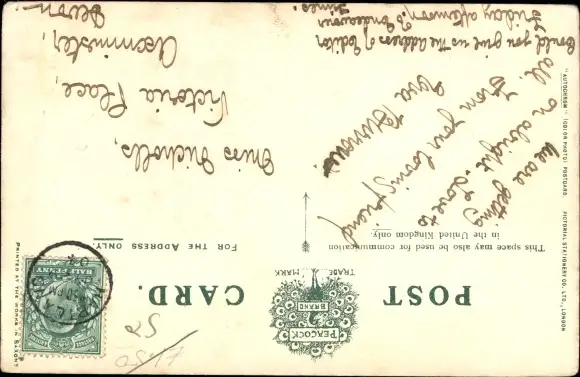 POST CARD.
PEACOCK
BRAND
TRADE MARK
This space may also be used for communication
in the United Kingdom only.
FOR THE ADDRESS ONLY.
HALF PENNY
We are getting
on alright. Love to
all, from your loving friend
Eva
Miss Nicholls,
Victoria Place,
Axminster,
Devon
Could you give us the address of Editor
Friday afternoon. To Endeavour
Times.
"AUTOCHROM" (COLOR PHOTO) POSTCARD. PICTORIAL STATIONERY CO. LTD., LONDON
PRINTED AT THE WORKS IN SAXONY